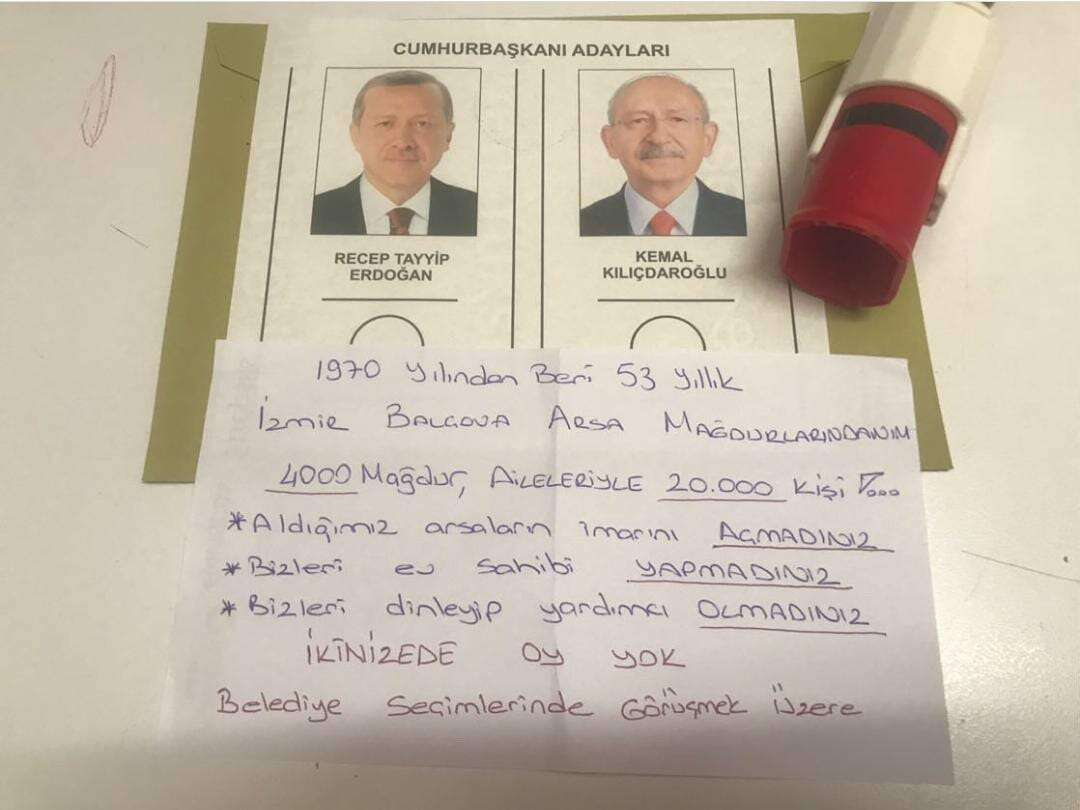 CUMHURBAŞKANI ADAYLARI
RECEP TAYYİP
ERDOĞAN
KEMAL
KILIÇDAROĞLU
1970 yılından Beri 53 yıllık
İzmir BALÇOVA ARSA MAĞDURLARINDANIM
4000 Mağdur, AİLELERİYLE 20.000 Kişi
*Aldığımız arsaların imarını AÇMADINIZ
*Bizleri ev sahibi YAPMADINIZ
*Bizleri dinleyip yardımcı OLMADINIZ
İKİNİZEDE OY YOK
Belediye Seçimlerinde Görüşmek Üzere